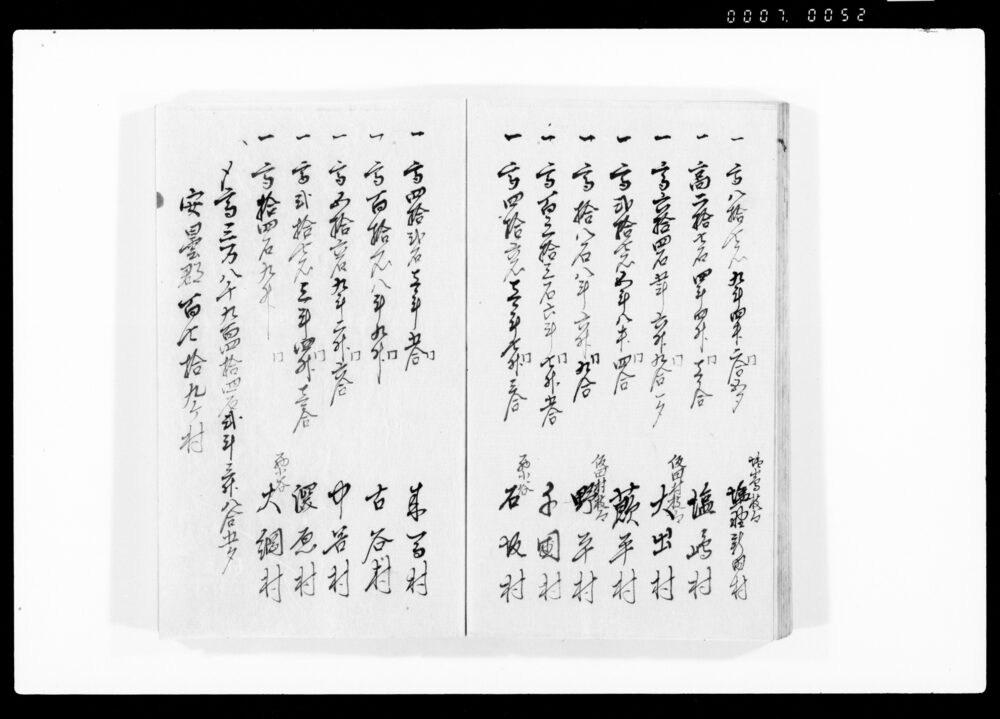 0007. 0052
一 高八拾七石九斗四升二合五夕 塩嶋新田村
一 高二拾七石四斗四升壱合 塩嶋村
一 高六拾四石弐斗六升九合一夕 飯田村枝郷 大出村
一 高弐拾七石五斗八升四合 蕨平村
一 高拾八石八斗六升九合 飯田村枝郷 野平村
一 高百三拾三石六斗七升五合 千国村
一 高四拾六石壱斗七升三合 石坂村
一 高四拾弐石壱斗五合 来馬村
一 高百拾石八斗九升 古谷村
一 高五拾六石九斗二升六合 中谷村
一 高弐拾七石三斗四升壱合 村
一 高拾四石九升 大綱村
〆高三万八千九百四拾四石弐斗三升八合五夕
安曇郡百七拾九ヶ村